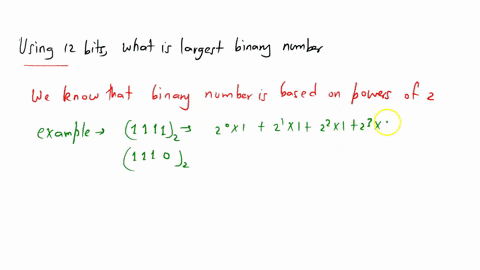 Using 12 bits, what is largest binary number
We know that binary number is based on powers of 2
example → (1111)₂ → 2⁰×1 + 2¹×1 + 2²×1 + 2³×
(1110)₂